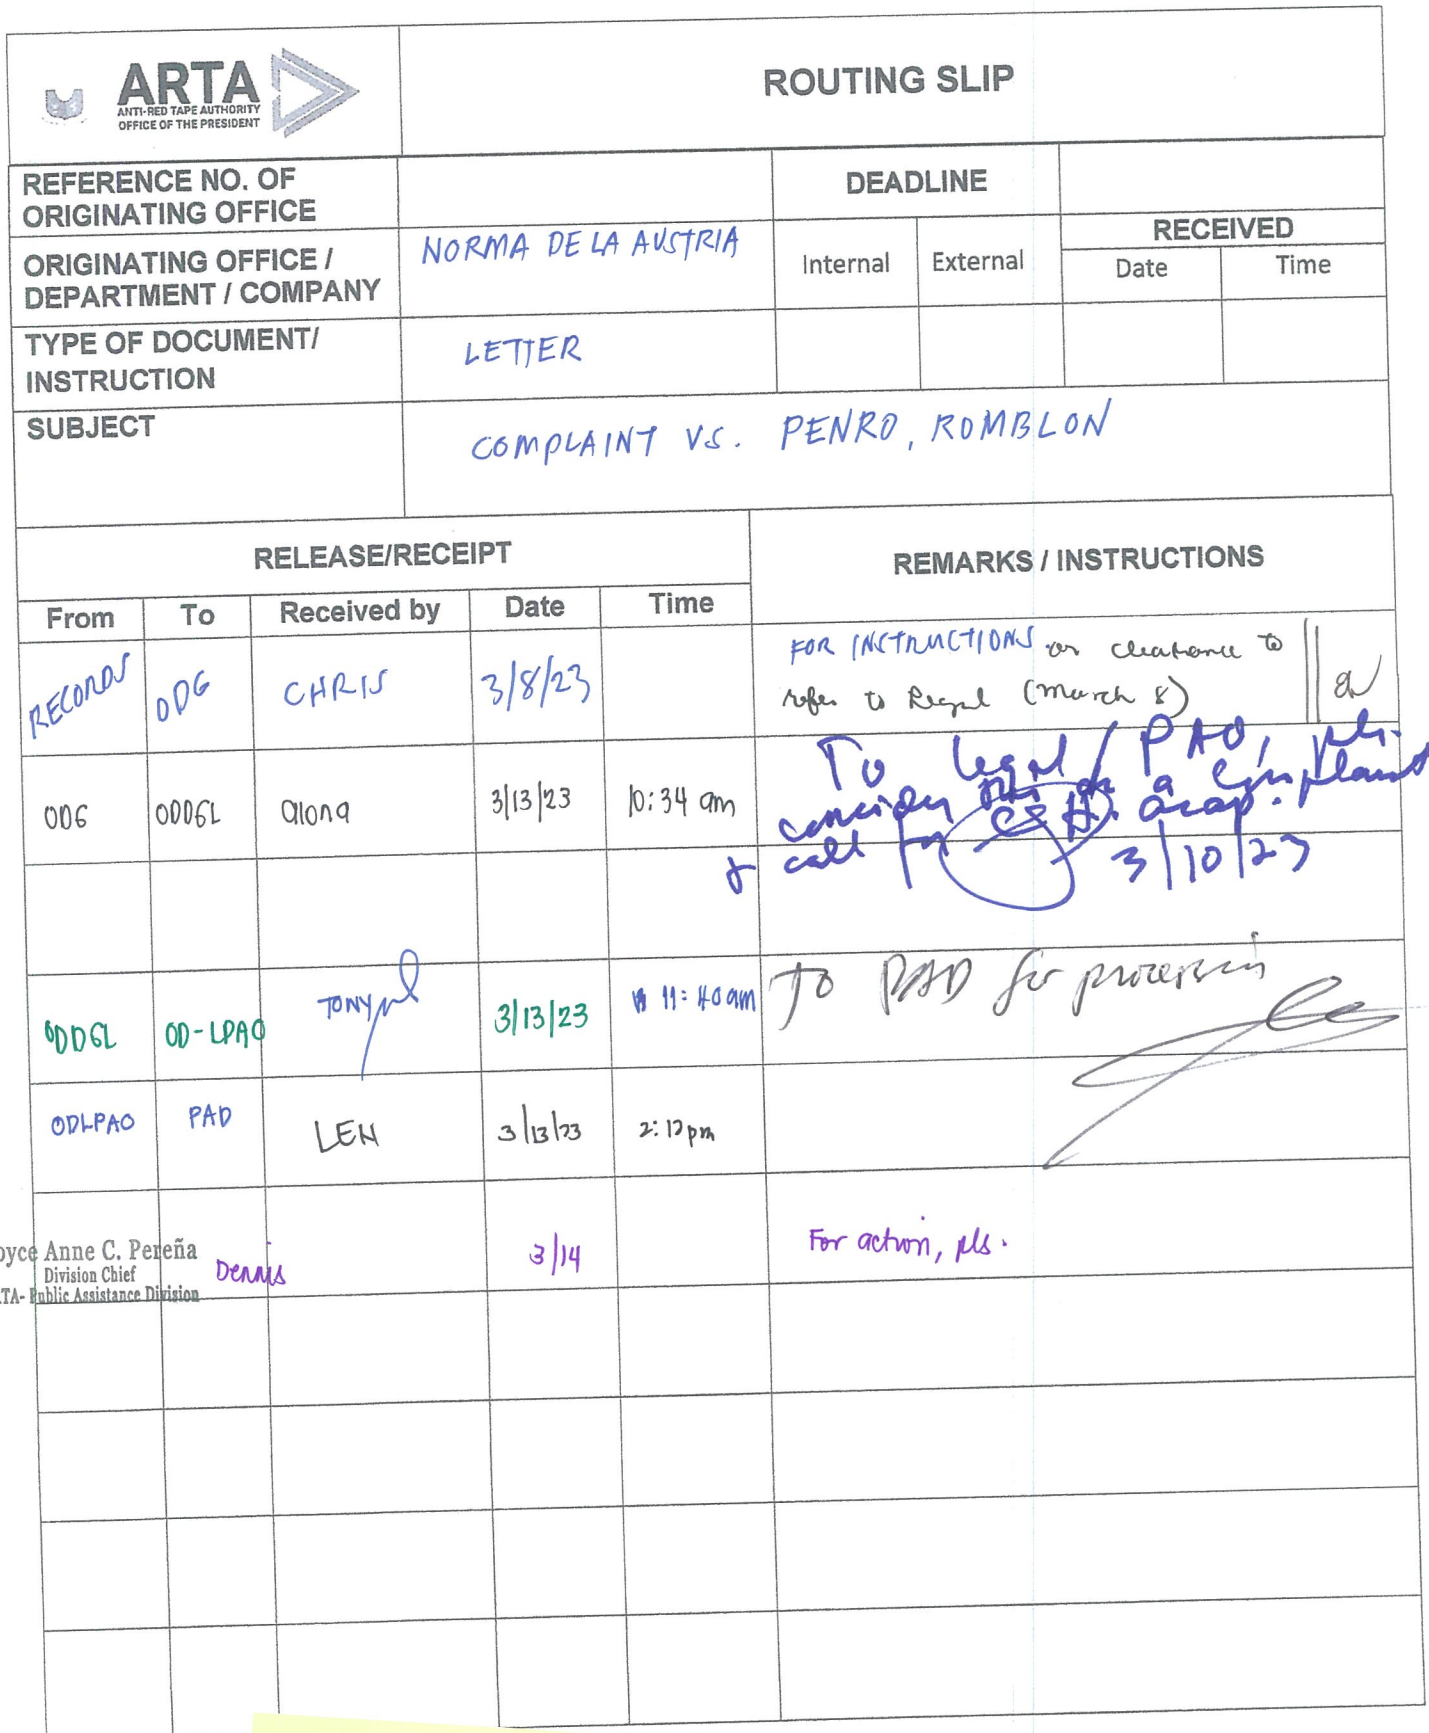 ARTA
ANTI-RED TAPE AUTHORITY
OFFICE OF THE PRESIDENT
ROUTING SLIP
REFERENCE NO. OF
ORIGINATING OFFICE
DEADLINE
ORIGINATING OFFICE /
DEPARTMENT / COMPANY
NORMA DE LA AUSTRIA
Internal External
RECEIVED
Date Time
TYPE OF DOCUMENT/
INSTRUCTION
LETTER
SUBJECT
COMPLAINT VS. PENRO, ROMBLON
RELEASE/RECEIPT
REMARKS / INSTRUCTIONS
From To Received by Date Time
RECORDS ODG CHRIS 3/8/23
FOR INSTRUCTIONS or clearance to
refer to (March 8)
ODG ODDGL alona 3/13/23 10:34 am
To Legal / PAO, pls.
consider this as a complaint
& call for asap.
3/10/23
ODDGL OD-LPAO TONY 3/13/23 11:40 am
To PAD for processing
ODLPAO PAD LEN 3/13/23 2:12 pm
oyce Anne C. Pereña
Division Chief
TA- Public Assistance Division
Dennis 3/14
For action, pls.